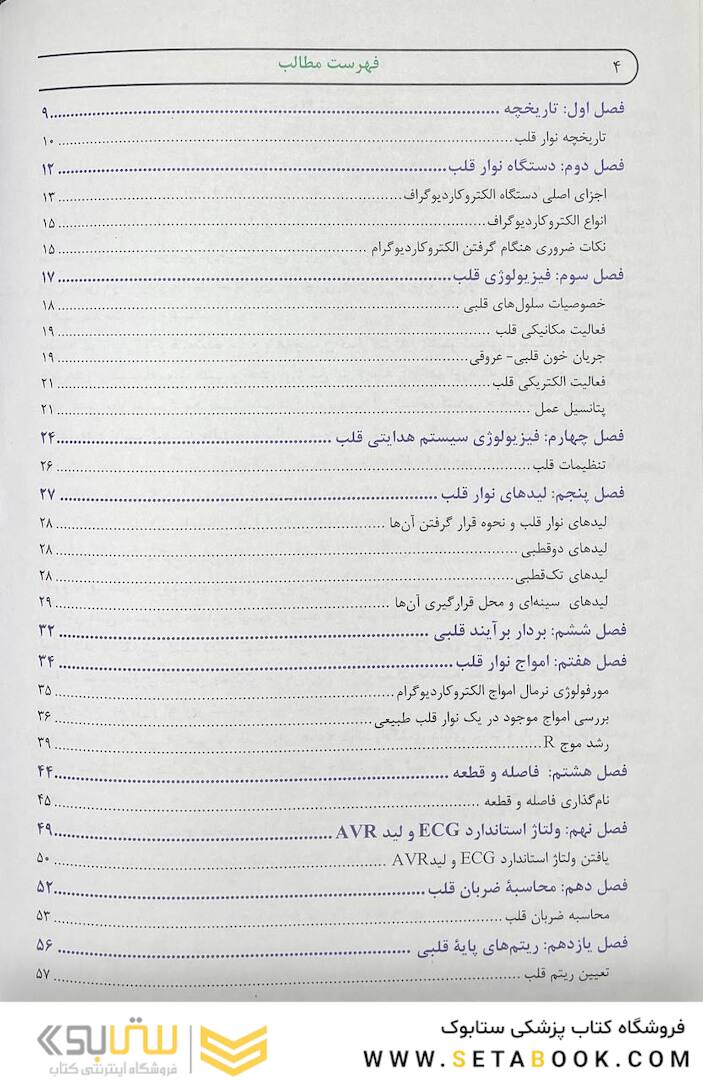 ۴ فهرست مطالب
فصل اول: تاریخچه ........ ۹
تاریخچه نوار قلب ........ ۱۰
فصل دوم: دستگاه نوار قلب ........ ۱۲
اجزای اصلی دستگاه الکتروکاردیوگراف ........ ۱۳
انواع الکتروکاردیوگراف ........ ۱۵
نکات ضروری هنگام گرفتن الکتروکاردیوگرام ........ ۱۵
فصل سوم: فیزیولوژی قلب ........ ۱۷
خصوصیات سلول‌های قلبی ........ ۱۸
فعالیت مکانیکی قلب ........ ۱۹
جریان خون قلبی- عروقی ........ ۱۹
فعالیت الکتریکی قلب ........ ۲۱
پتانسیل عمل ........ ۲۱
فصل چهارم: فیزیولوژی سیستم هدایتی قلب ........ ۲۴
تنظیمات قلب ........ ۲۶
فصل پنجم: لیدهای نوار قلب ........ ۲۷
لیدهای نوار قلب و نحوه قرار گرفتن آن‌ها ........ ۲۸
لیدهای دوقطبی ........ ۲۸
لیدهای تک‌قطبی ........ ۲۸
لیدهای سینه‌ای و محل قرارگیری آن‌ها ........ ۲۹
فصل ششم: بردار برآیند قلبی ........ ۳۲
فصل هفتم: امواج نوار قلب ........ ۳۴
مورفولوژی نرمال امواج الکتروکاردیوگرام ........ ۳۵
بررسی امواج موجود در یک نوار قلب طبیعی ........ ۳۶
رشد موج R ........ ۳۹
فصل هشتم: فاصله و قطعه ........ ۴۴
نام‌گذاری فاصله و قطعه ........ ۴۵
فصل نهم: ولتاژ استاندارد ECG و لید AVR ........ ۴۹
یافتن ولتاژ استاندارد ECG و لیدAVR ........ ۵۰
فصل دهم: محاسبۀ ضربان قلب ........ ۵۲
محاسبه ضربان قلب ........ ۵۳
فصل یازدهم: ریتم‌های پایۀ قلبی ........ ۵۶
تعیین ریتم قلب ........ ۵۷
فروشگاه کتاب پزشکی ستابوک
WWW.SETABOOK.COM
ستابوک
فروشگاه اینترنتی کتاب